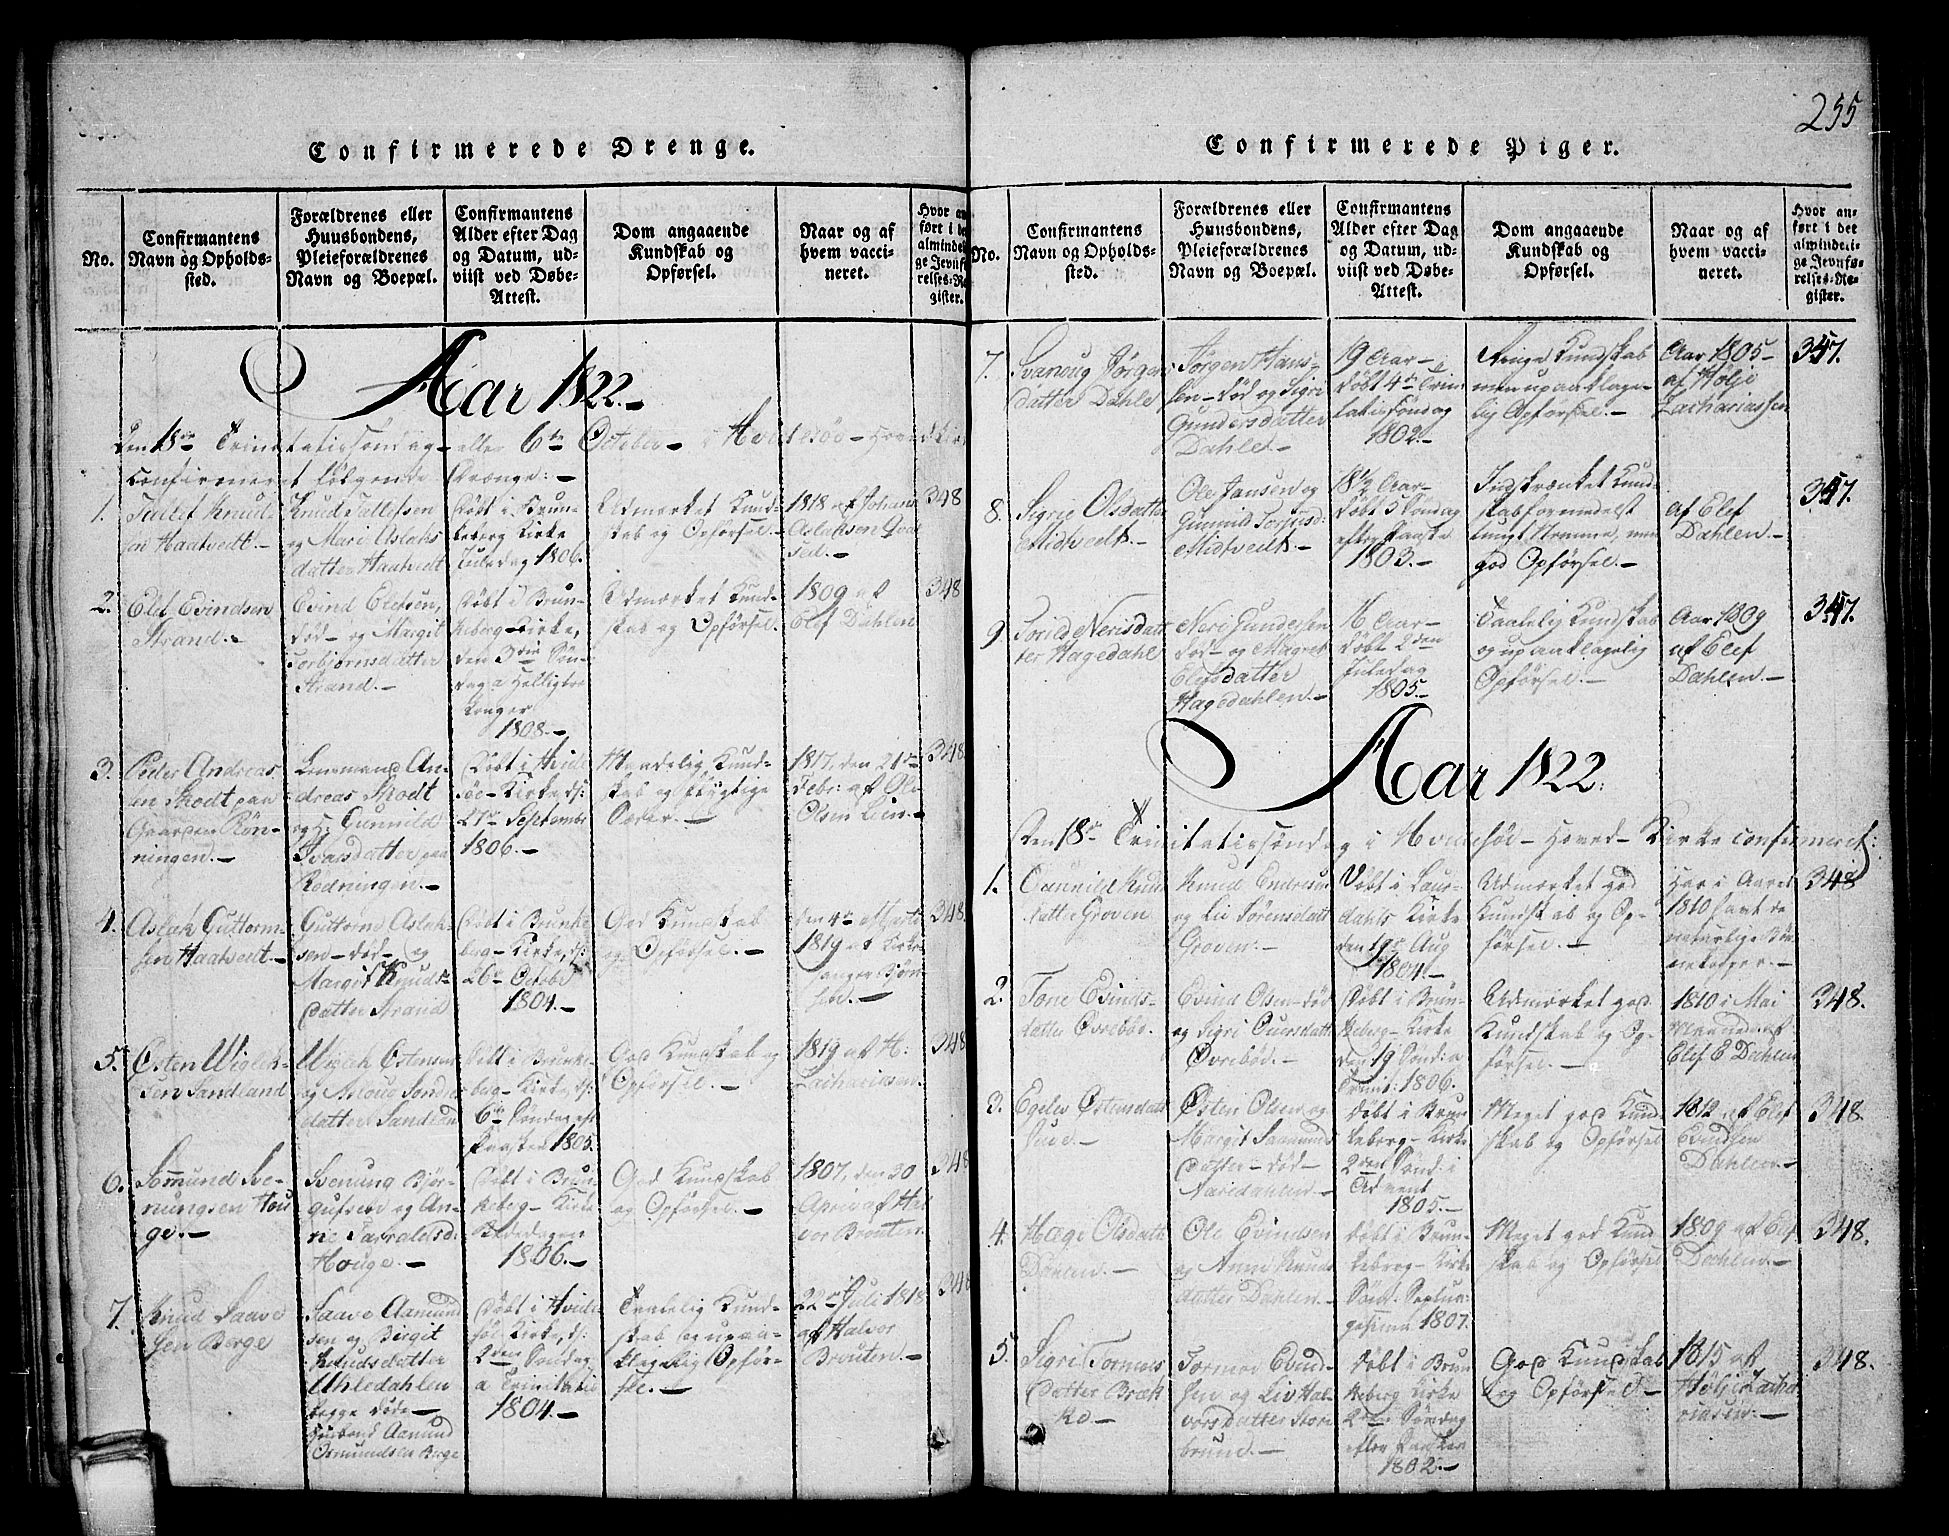 255
Confirmerede Drenge.
No.
Confirmantens
Navn og Opholds-
sted.
Forældrenes eller
Huusbondens,
Pleieforældrenes
Navn og Boepæl.
Confirmantens
Alder efter Dag
og Datum, ud-
viist ved Døbe-
Attest.
Dom angaaende
Kundskab og
Opførsel.
Naar og af
hvem vacci-
neret.
Hvor an-
ført i det
almindeli-
ge Jevnfø-
relses-Re-
gister.
Aar 1822.-
Den 18de Trinitatissøndag - eller 6te October - i Hvidesøe - Hoved Kirke
confirmeret følgende Drænge: -
1.
Tallef Knud-
sen Haatvedt.-
Knud Tallefsen
og Mari Aslaks
datter Haatvedt
Døbt i Brun-
keberg Kirke
Juledag 1806.
Udmærket Kund-
skab og Opførsel.-
1818 af Johans
Aslaksen
348
2.
Elef Evindsen
Strand.-
Evind Elefsen,
død - og Margit
Torbjørnsdatter
Strand.-
Døbt i Brun-
keberg-Kirke,
den 3die Søn-
dag a Helligtre
Konger
1808.-
Udmærket Kund-
skab og Opførsel.
1809 af
Elef Dahlen
348
3.
Peder Andreas
sen Skodt paa
Gaarden Røn-
ningen.-
Lensmand An-
dreas Skodt
og H: Gunnild
Ivarsdatter paa
Rødningen.-
Døbt i Hvide
søe-Kirke, d:
21de Septembr
1806.-
Maadelig Kund-
skab og flygtige
Sæder.-
1817, den 21de
Febr: af Ole
Olsen Lien.-
348
4.
Aslak Guttorm-
sen Haatvedt.-
Guttorm Aslak-
sen - død - og
Margit Knuds-
datter Strand
Døbt i Brunke
berg-Kirke, d:
26de October
1804.-
God Kundskab
og Opførsel.-
den 4de
1819 af Kirke
sanger Bjørn
348
5.
Østen Wiglek-
sen Sandland
Wigleik Østensen
og
datter Sandland
Døbt i Brunke
berg-Kirke, d:
6te Søndag eft
Paasken 1805.
God Kundskab og
Opførsel.-
1819 af H:
Zachariasen.
348
6.
Aamund Sve-
nungsen Hou
ge.-
Svenung Bjør-
gufsen og An-
ne Taraldsd:
Houge.-
Døbt i Brun
keberg-Kirke
1806.-
God Kundskab
og Opførsel.-
1807, den 30
April af Hal
vor Brouten.
348
7.
Knud Saave
sen Berge
Saave Aamund
sen og Birgit
Knudsdatter
Uhledahlen
begge døde-
Aamund
Osmundsen Berge
Døbt i Hvide
søe Kirke, d:
2den Søndag
a Trinitatis
1804.-
Taalelig Kund-
skab og upaa-
klagelig Opfør-
sel.-
22de Juli 1818
af Halvor
Brouten.-
348
Confirmerede Piger.
No.
Confirmantens
Navn og Opholds-
sted.
Forældrenes eller
Huusbondens,
Pleieforældrenes
Navn og Boepæl.
Confirmantens
Alder efter Dag
og Datum, ud-
viist ved Døbe-
Attest.
Dom angaaende
Kundskab og
Opførsel.
Naar og af
hvem vacci-
neret.
Hvor an-
ført i det
almindeli-
ge Jevnfø-
relses-Re-
gister.
7.
Svanoug Jørgens
datter Dahle
Jørgen Hans-
sen - død og Sigri
Gundersdatter
Dahle.-
19 Aar-
Døbt 4de Trini-
tatis søndag
1802.-
Ringe Kundskab
men upaaklage-
lig Opførsel.-
Aar 1805-
af Hølje
Zachariassen
347.
8.
Sigrie Olsdatter
Midtvedt.-
Ole Jansen og
Gunnild Torjusd:
Midtvedt.-
18½ Aar-
Døbt 5 Søndag
efter Paaske
1803.-
Indskrænket Kund-
skab formedelst
tungt Nemme, men
god Opførsel.-
af Elef
Dahlen.-
347.
9.
Torild Nerisdat-
ter Hagedahl
Neri Gundersen
død- og Margret
Elefsdatter
Hagedahlen.-
16 Aar-
Døbt 2den
Juledag
1805.-
Taalelig Kundskab
og upaaklagelig
Opførsel.-
Aar 1809
af Elef
Dahlen.-
347.
Aar 1822.
Den 18de Trinitatissøndag i Hvidesøe - Hoved - Kirke confirmeret:
1.
Gunnild Knuds
datter Groven
Knud Endresen
og Liv Sørensdatt
Groven.-
Døbt i Laur-
dahls Kirke
den 19de Aug
1804.-
Udmærket god
Kundskab og Op-
førsel.-
Har i Aaret
1810 havt de
naturlige Bør-
nekopper.-
348
2.
Tone Evinds-
datter Øvrebøe.
Evind Olsen - død
og Sigri
Øvrebød.-
Døbt i Brun-
keberg-Kirke
den 19 Sønd: a
Trinit: 1806.
Udmærket god
Kundskab og Op-
førsel.-
1810 i Mai
Maaned af
Elef E Dahlen
348.
3.
Egelev Østensdatt
Østen Olsen og
Margit Saamunds
datter - død-
Naredahlen.-
Døbt i Brun
keberg-Kirke
2den Sønd: i
Advent
1805.-
Meget god Kund-
skab og Opførsel
1812 af Elef
Evindsen
Dahlen.-
348
4.
Hæge Olsdatt
Dahlen.-
Ole Evindsen
og Anne Knuds
datter Dahlen.-
Døbt i Brun-
keberg-Kirke
Sønd: Septua-
gesima 1807.
Meget god Kund
skab og Opførsel
1809 af Elef
Dahlen.-
348.
5.
Sigri Tormods
datter Bræk
ke-
Tormod Evind-
sen og Liv Hal-
vorsdatter Store
brund.-
Døbt i Brun
keberg Kirke
2den Søndag
efter Paasken
1802.-
God Kundskab
og Opførsel-
1815 af
Hølje Zachar
iasen.-
348.